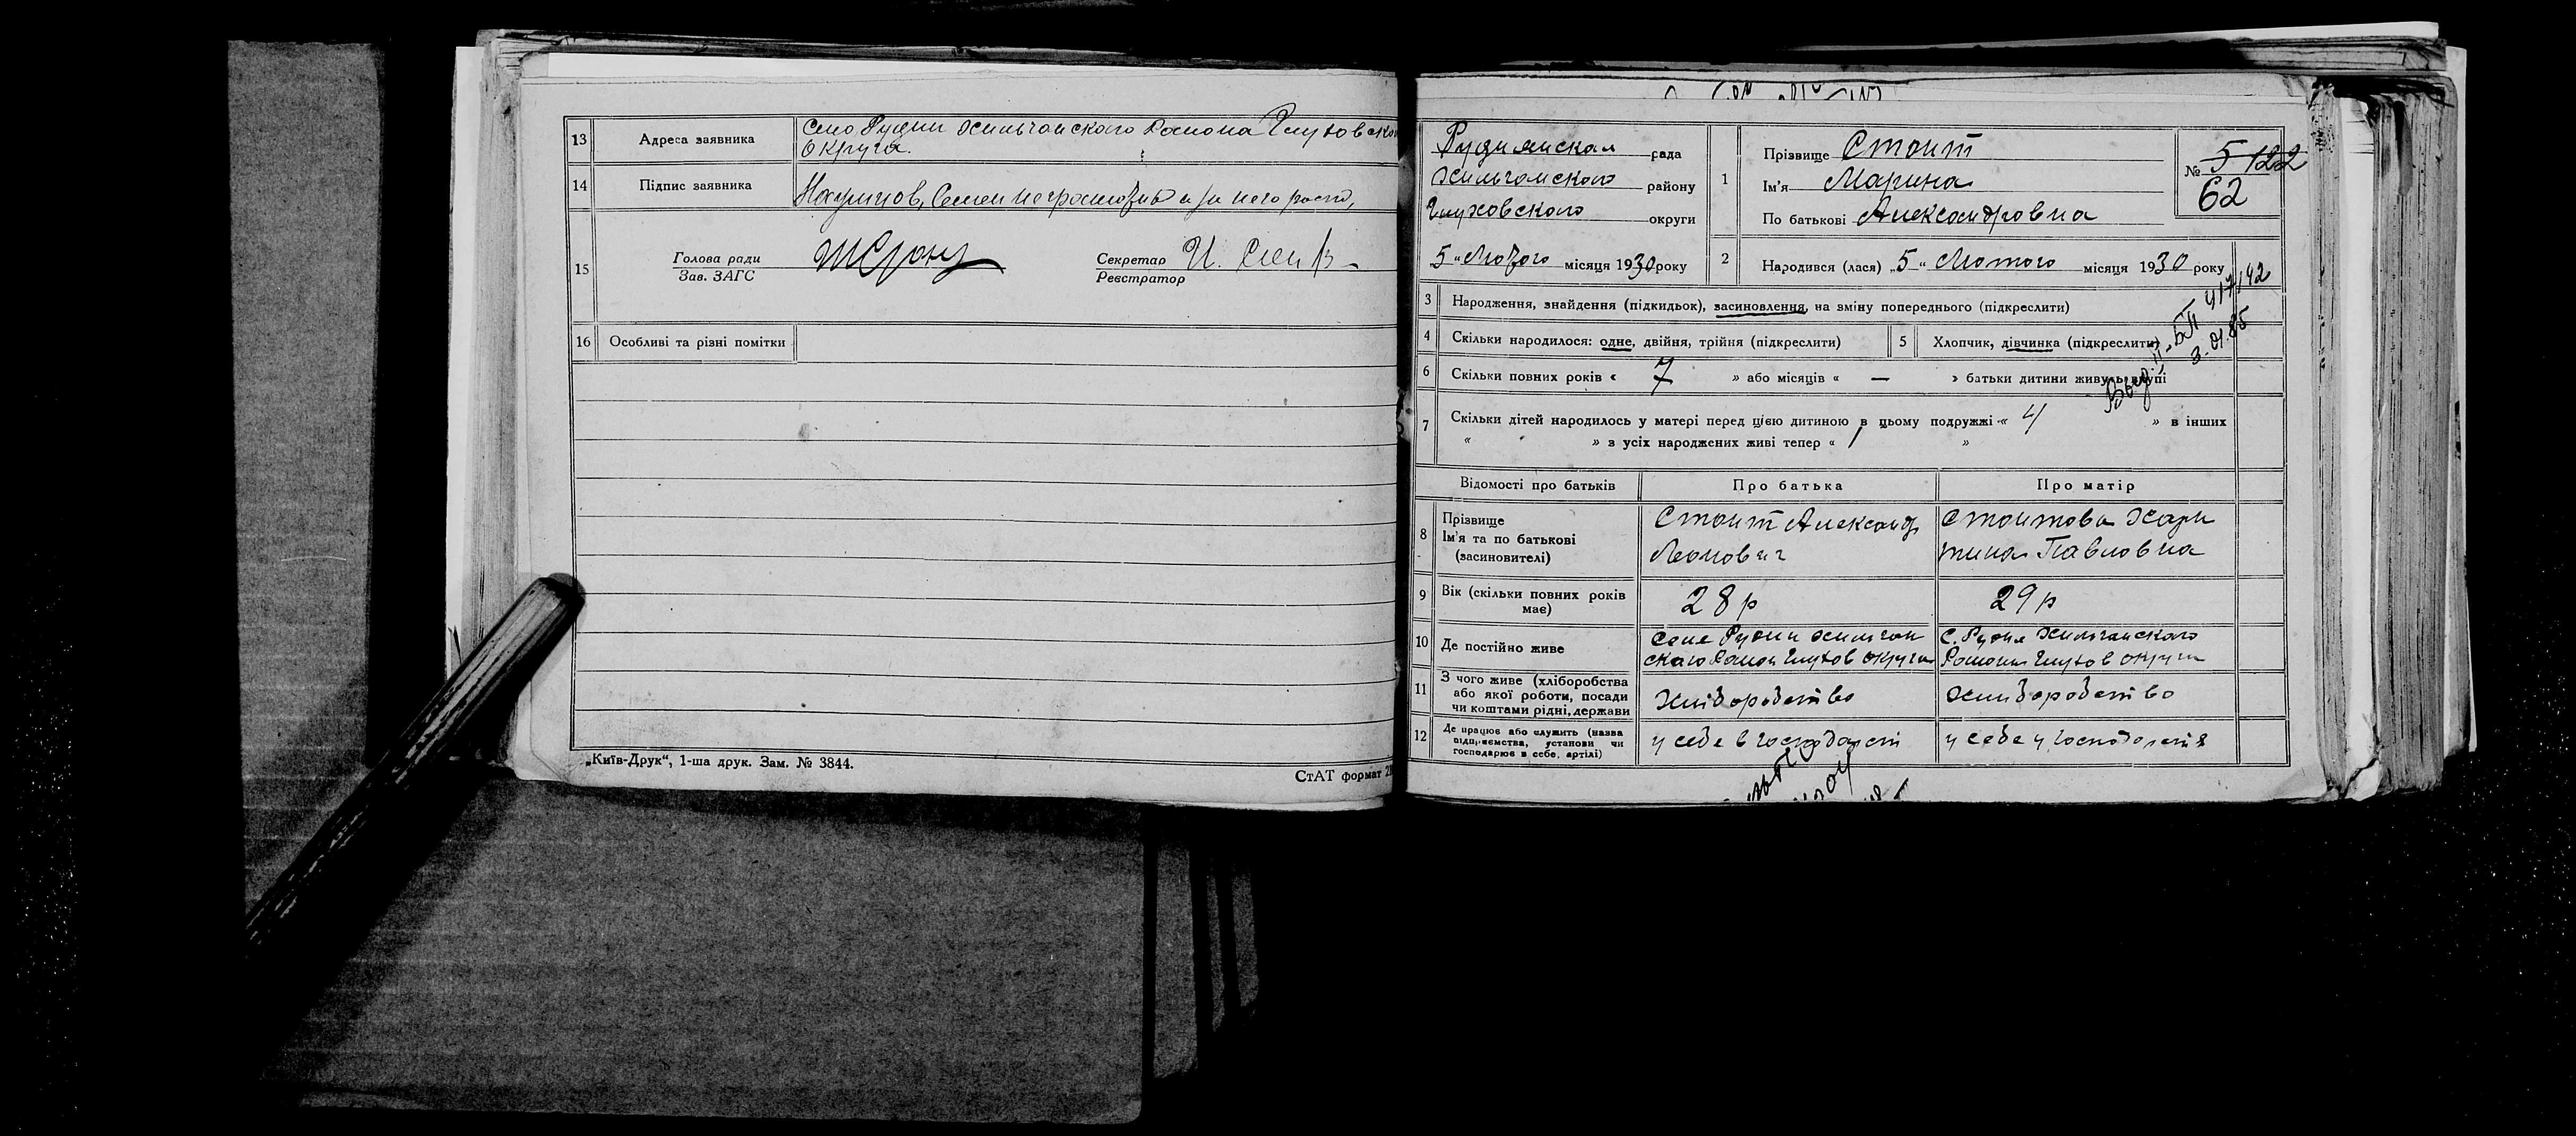 13 Адреса заявника Село Рудни Хильчанского Района Глуховского
Округи.
14 Підпис заявника Наумнов, Семен неграмотный а за него
15 Голова ради
Зав. ЗАГС
Секретар И.
Реєстратор
16 Особливі та різні помітки
„Київ-Друк“, 1-ша друк. Зам. № 3844.
СтАТ формат
Руднянская рада
Хильчанского району
Глуховского округи
5 „Лютого місяця 1930 року
1 Прізвище Стоит
Ім'я Марина
По батькові Александровна
№ 5 122
62
2 Народився (лася) „5“ Лютого місяця 1930 року
3 Народження, знайдення (підкидьок), засиновлення, на зміну попереднього (підкреслити)
4 Скільки народилося: одне, двійня, трійня (підкреслити)
5 Хлопчик, дівчинка (підкреслити)
6 Скільки повних років « 7 » або місяців « — » батьки дитини живуть вкупі
7 Скільки дітей народилось у матері перед цією дитиною в цьому подружжі « 4 » в інших
« » з усіх народжених живі тепер « 1 »
Выд. II-БП 417142
3.01.85
Відомості про батьків Про батька Про матір
8 Прізвище
Ім'я та по батькові
(засиновителі)
Стоит Александр
Леонович
Стоитова Хари
тина Павловна
9 Вік (скільки повних років
має)
28 р
29 р
10 Де постійно живе
Селе Рудни Хильчан
ского Район Глухов округи
С. Рудня Хильчанского
Района Глухов округи
11 З чого живе (хліборобства
або якої роботи, посади
чи коштами рідні, держави
Хлиборобство
Хлиборобство
12 Де працює або служить (назва
підприємства, установи чи
господарює в себе, артілі)
у себе в господарст
у себе у господарстві